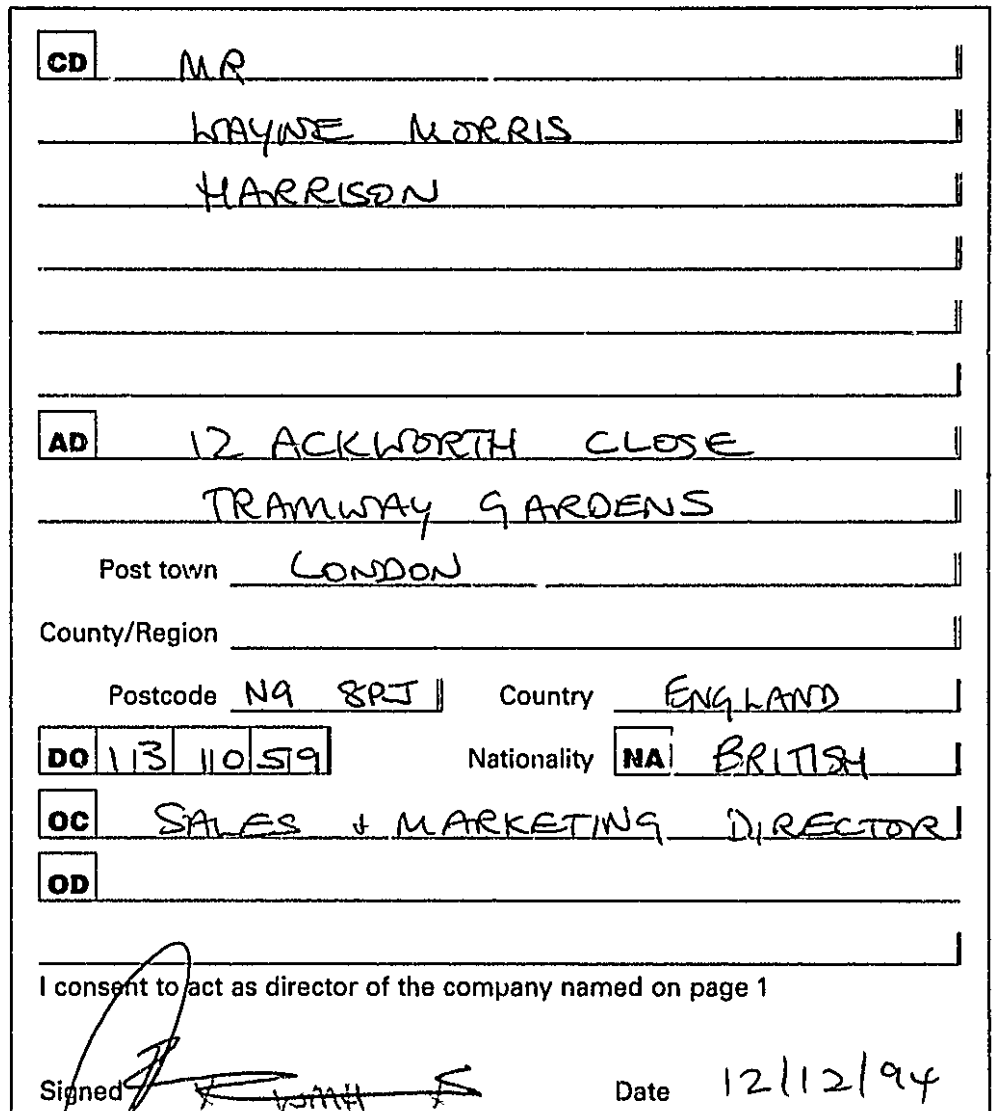 CD MR
WAYNE MORRIS
HARRISON
AD 12 ACKWORTH CLOSE
TRAMWAY GARDENS
Post town LONDON
County/Region
Postcode N9 8PJ Country ENGLAND
DO 13 10 59 Nationality NA BRITISH
OC SALES + MARKETING DIRECTOR
OD
I consent to act as director of the company named on page 1
Signed WMH Date 12/12/94